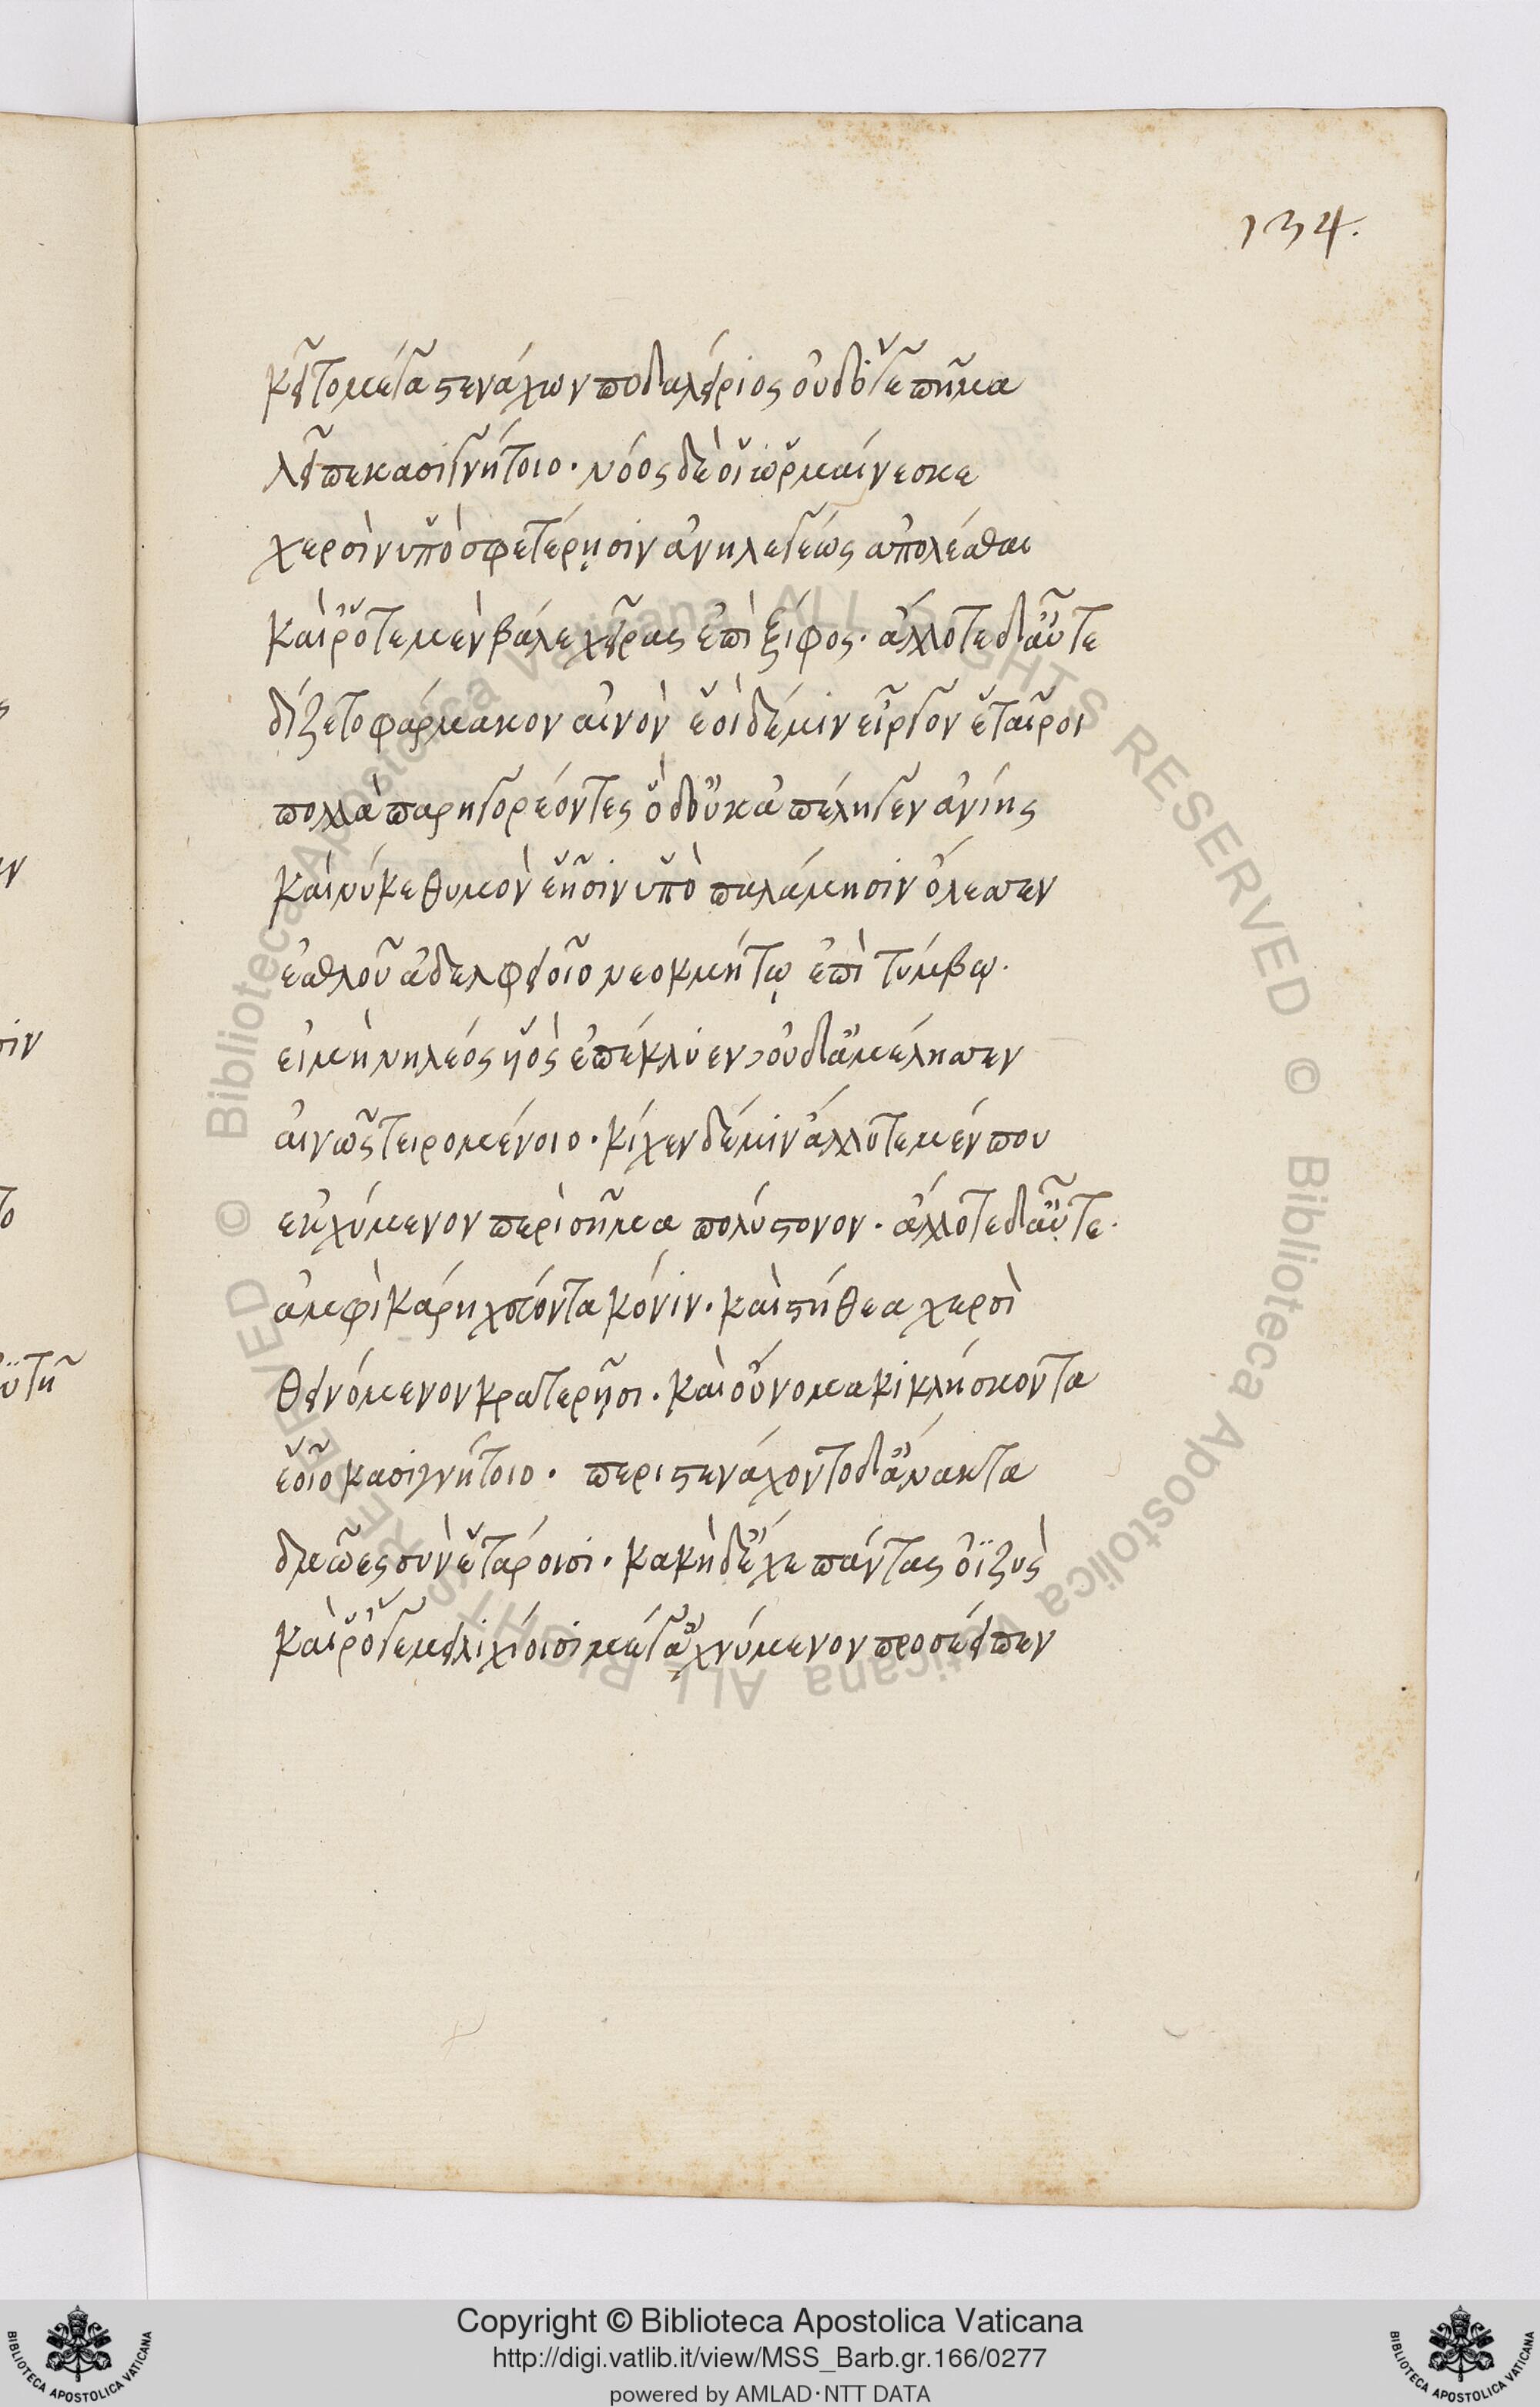 134.
κεῖτο μέγα στενάχων ποδαλείριος οὐδ' ὅγε σῆμα
λεῖπε κασιγνήτοιο· νόος δέ οἱ ὡρμαίνεσκε
χερσὶν ὑπὸ σφετέρῃσιν ἀνηλεγέως ἀπολέσθαι
καί ῥ' ὁτὲ μὲν βάλε χεῖρας ἐπὶ ξίφος· ἄλλοτε δ' αὖτε
δίζετο φάρμακον αἰνὸν ἑοὶ δέ μιν εἶργον ἑταῖροι
πολλὰ παρηγορέοντες ὁ δ' οὐκ ἀπέληγεν ἀνίης
καί νύ κε θυμὸν ἑῇσιν ὑπὸ παλάμησιν ὄλεσσεν
ἐσθλοῦ ἀδελφειοῖο νεοκμήτῳ ἐπὶ τύμβῳ·
εἰ μὴ νηλέος υἱὸς ἐπέκλυεν, οὐδ' ἀμέλησεν
αἰνῶς τειρομένοιο· κίχεν δέ μιν ἄλλοτε μέν που
ἐκχύμενον περὶ σῆμα πολύστονον· ἄλλοτε δ' αὖτε·
ἀμφὶ κάρη χέοντα κόνιν· καὶ στήθεα χερσὶ
θεινόμενον κρατερῇσι· καὶ οὔνομα κικλήσκοντα
ἑοῖο κασιγνήτοιο· περιστενάχοντο δ' ἄνακτα
δμῶες σὺν ἑτάροισι· κακὴ δ' ἔχε πάντας ὀϊζὺς
καί ῥ' ὅγε μειλιχίοισι μέγ' ἀχνύμενον προσέειπεν
Copyright © Biblioteca Apostolica Vaticana
http://digi.vatlib.it/view/MSS_Barb.gr.166/0277
powered by AMLAD·NTT DATA